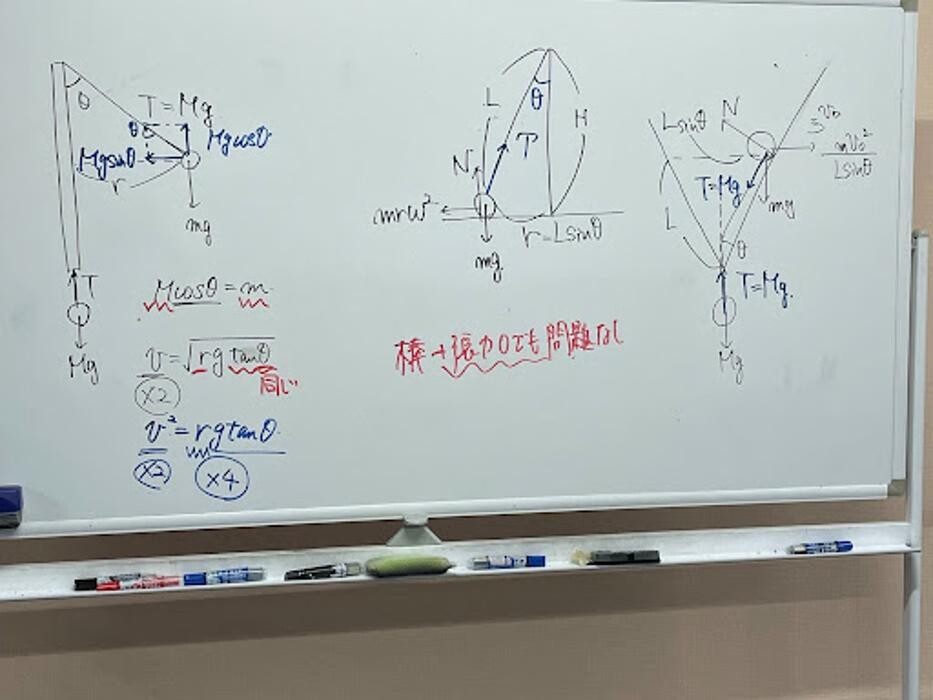 θ
T=Mg
θ
Mgcosθ
Mgsinθ
r
mg
T
Mg
Mcosθ=m
v=√rg tanθ
同じ
×2
v²=rg tanθ
×2
×4
L
θ
H
T
N
mrω²
r=Lsinθ
mg
棒→張力0でも問題なし
Lsinθ
N
v₀
mv₀²
Lsinθ
T=Mg
mg
L
θ
T=Mg.
Mg